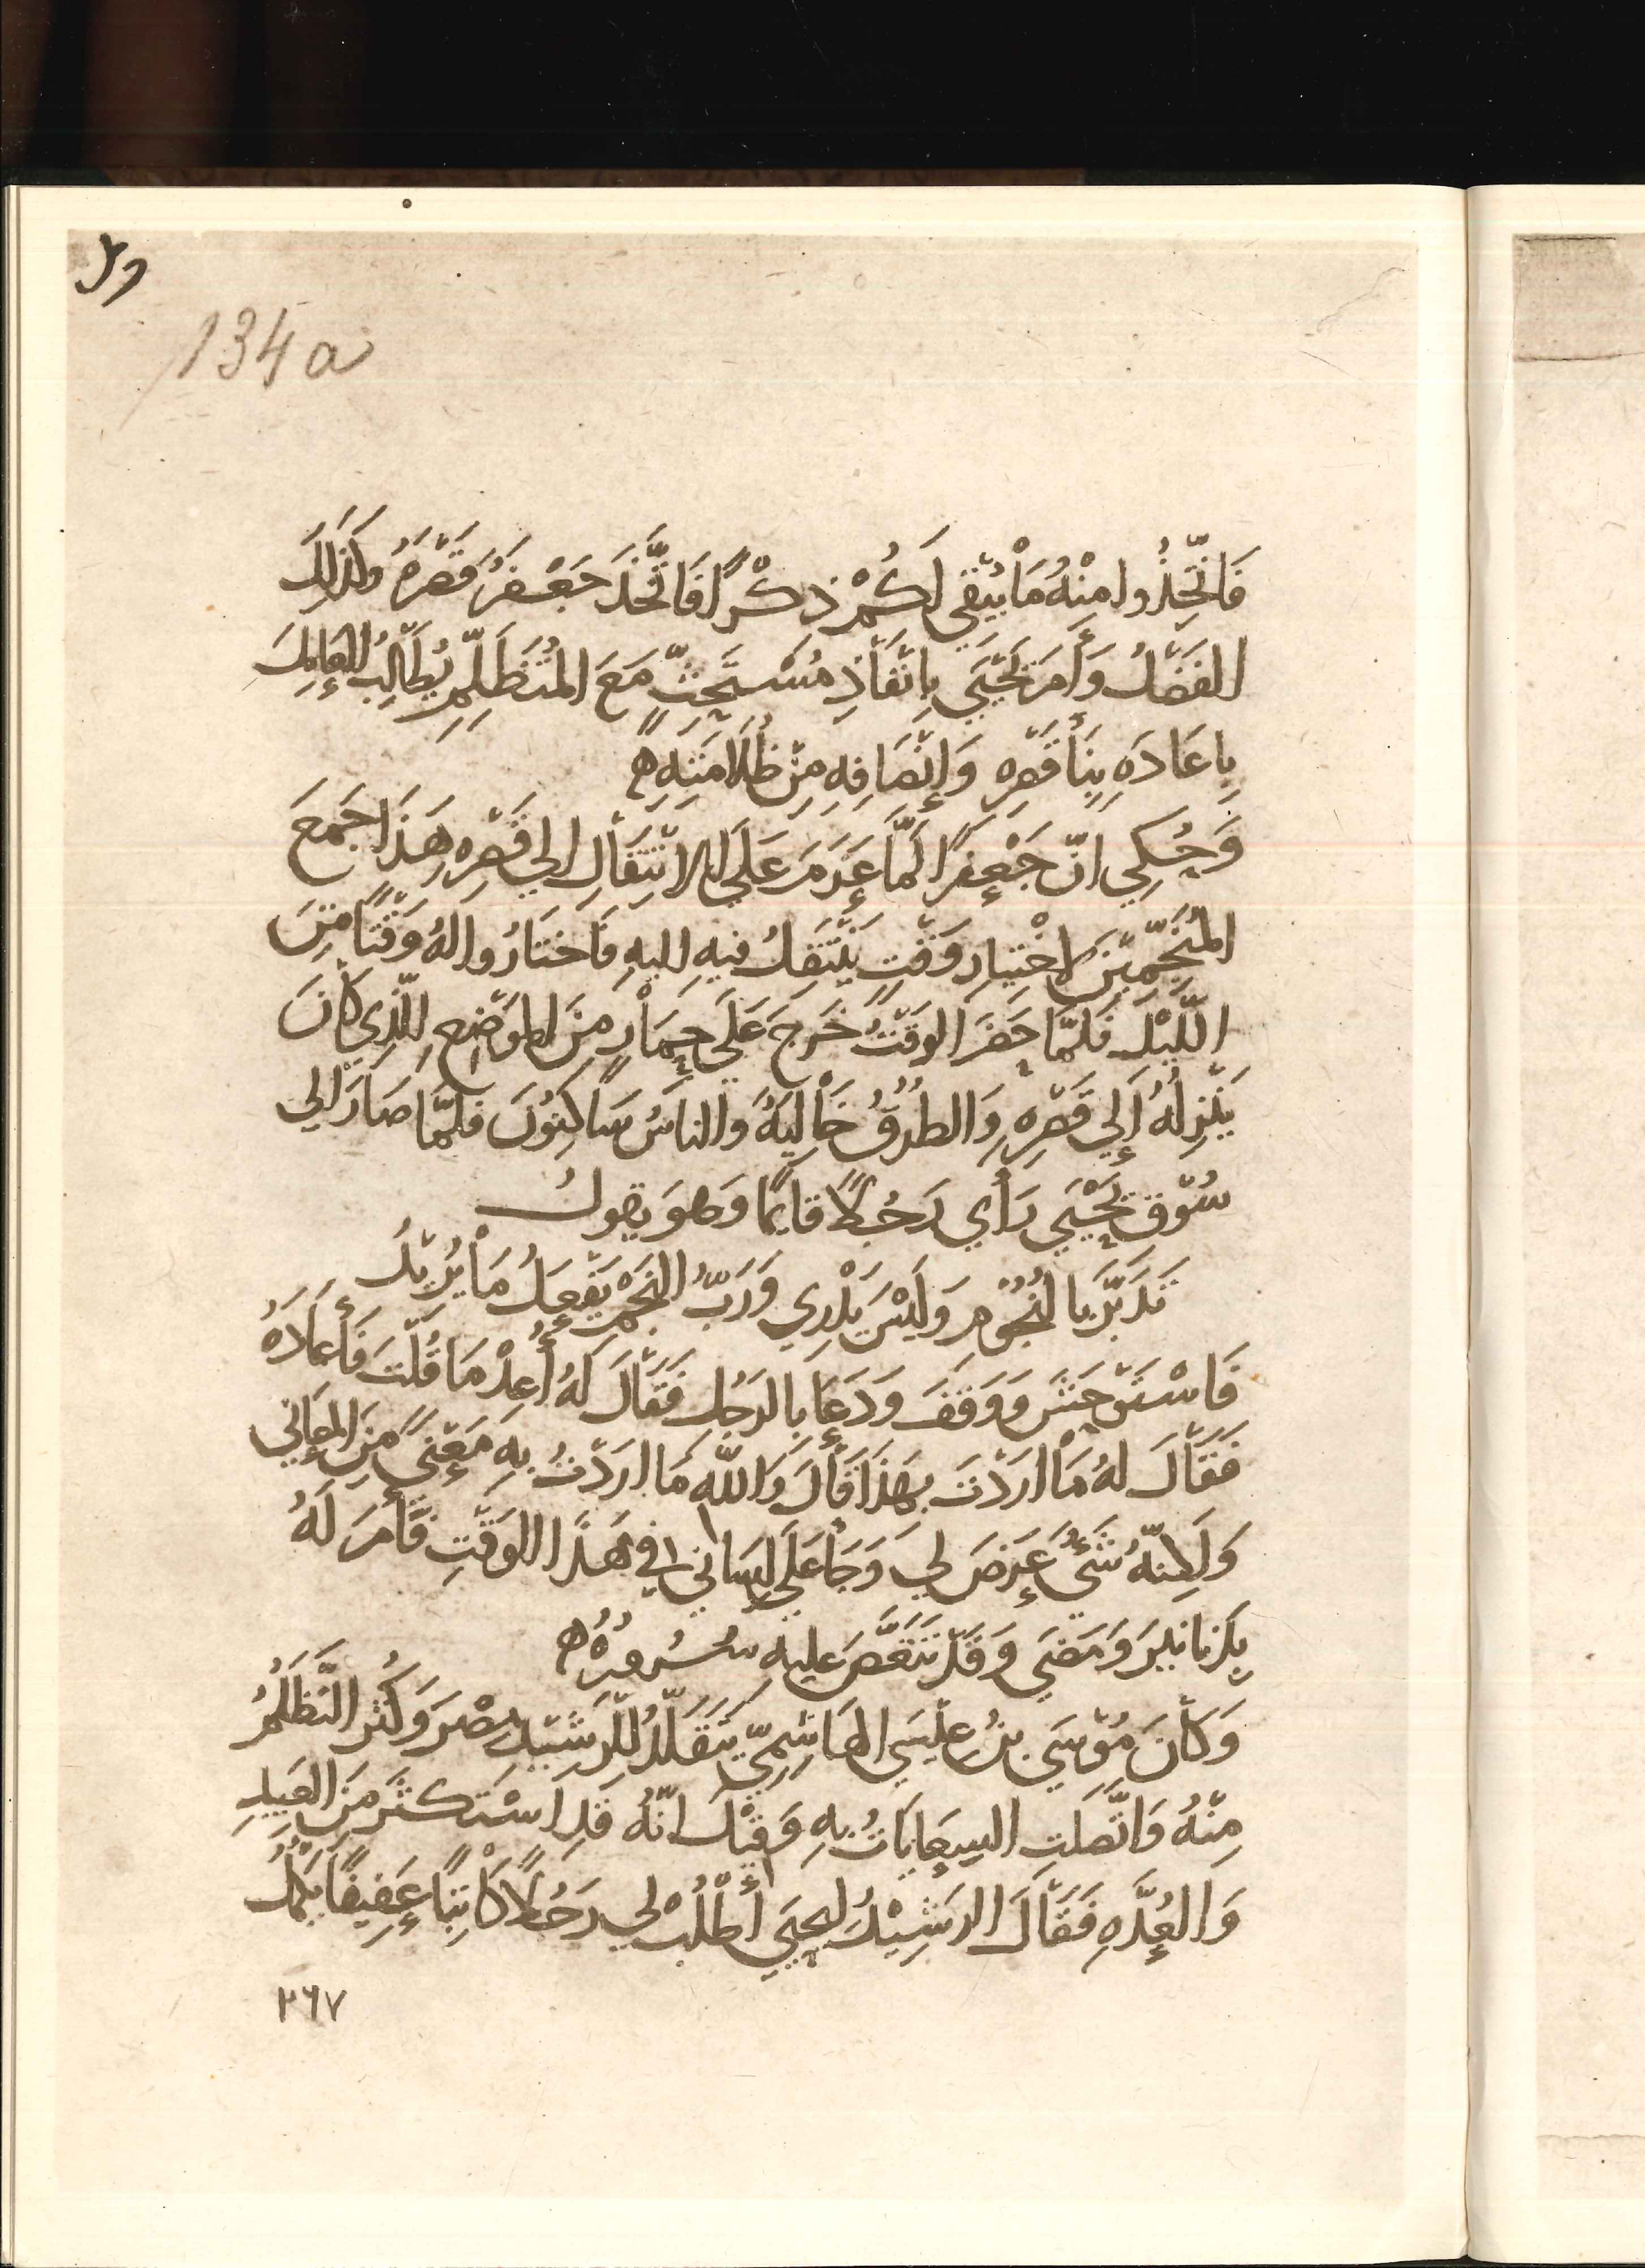 134a
فَاتَّخِذُوا مِنْهُ مَا يُبْقِي لَكُمْ ذِكْرًا فَاتَّخَذَ جَعْفَرُ قَصْرَهُ وَكَذَلِكَ
الفَضْلُ وَأَمَرَ يَحْيَي بِإِنْفَاذِ مُسْتَحِثٍّ مَعَ المُتَظَلِّمِ يُطَالِبُ العَامِلَ
بِإِعَادَهِ بِنَاءِ قَصْرِهِ وَإِنْصَافِهِ مِنْ ظُلَامَتِهِ ه
وَحُكِي انّ جَعْفَرًا لَمَّا عَزَمَ عَلَي الانْتِقَالِ الي قَصْرِهِ هَذَا جَمَعَ
المُنَجِّمِيْنَ لاخْتِيارِ وَقْتٍ يَنْتَقِلُ فيهِ اليهِ فَاخْتَارُوا لهُ وَقْتًا مِنَ
اللَّيْلِ فَلمَّا حَضَرَ الوَقْتُ خَرَجَ عَلَي حِمَارٍ مِنَ المَوْضِعِ الَّذِي كَانَ
يَنْزِلُهُ إِلَي قَصْرِهِ وَالطُرُقُ خَالِيَهٌ وَالناسُ سَاكِنُونَ فلمَّا صَارَ الي
سُوْقِ يَحْيَي رَأَي رَجُلًا قايمًا وَهوَ يقولُ
تَدَبَّرَ بالنُجُوْمِ وَلَيْسَ يَدْرِي وَرَبُّ النَجْمِ يَفْعَلُ مَا يُرِيْدُ
فَاسْتَوْحَشَ وَوَقَفَ وَدَعَا بِالرَجُلِ فَقَالَ لَهُ أَعِدْ مَا قُلْتَ فَأَعَادَهُ
فَقَالَ لهُ مَا ارَدْتَ بِهَذَا قَالَ وَاللّه مَا ارَدْتُ بِهِ مَعْنًي مِنَ المعَانِي
وَلَكِنّهُ شَيٌ عَرَضَ لِي وَجَا عَلَي لِسَاني في هَذَا الوَقْتِ فَأَمَرَ لَهُ
بِدَنانيرَ وَمَضَي وَقَدْ تَنَغَّصَ عليهِ سُرُورُهُ ه
وَكَانَ مُوْسَي بنُ عيْسَي الهَاشِمِيّ يَتَقَلَّدُ لِلرَشِيْدِ مِصْرَ وَكَثُرَ التَظَلُّمُ
مِنْهُ وَاتَّصَلَتِ السِعَايَاتُ بِهِ وَقِيْلَ انّهُ قَدِ اسْتَكْثَرَ مِنَ العَبِيدِ
وَالعُدَّهِ فَقَالَ الرَشِيْدُ ليحيَي أُطْلُبْ لِي رَجُلًا كَاتِبًا عَفِيفًا يَكْمُلُ
٢٦٧